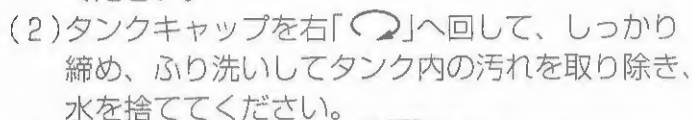 (2)タンクキャップを右「↷」へ回して、しっかり
締め、ふり洗いしてタンク内の汚れを取り除き、
水を捨ててください。